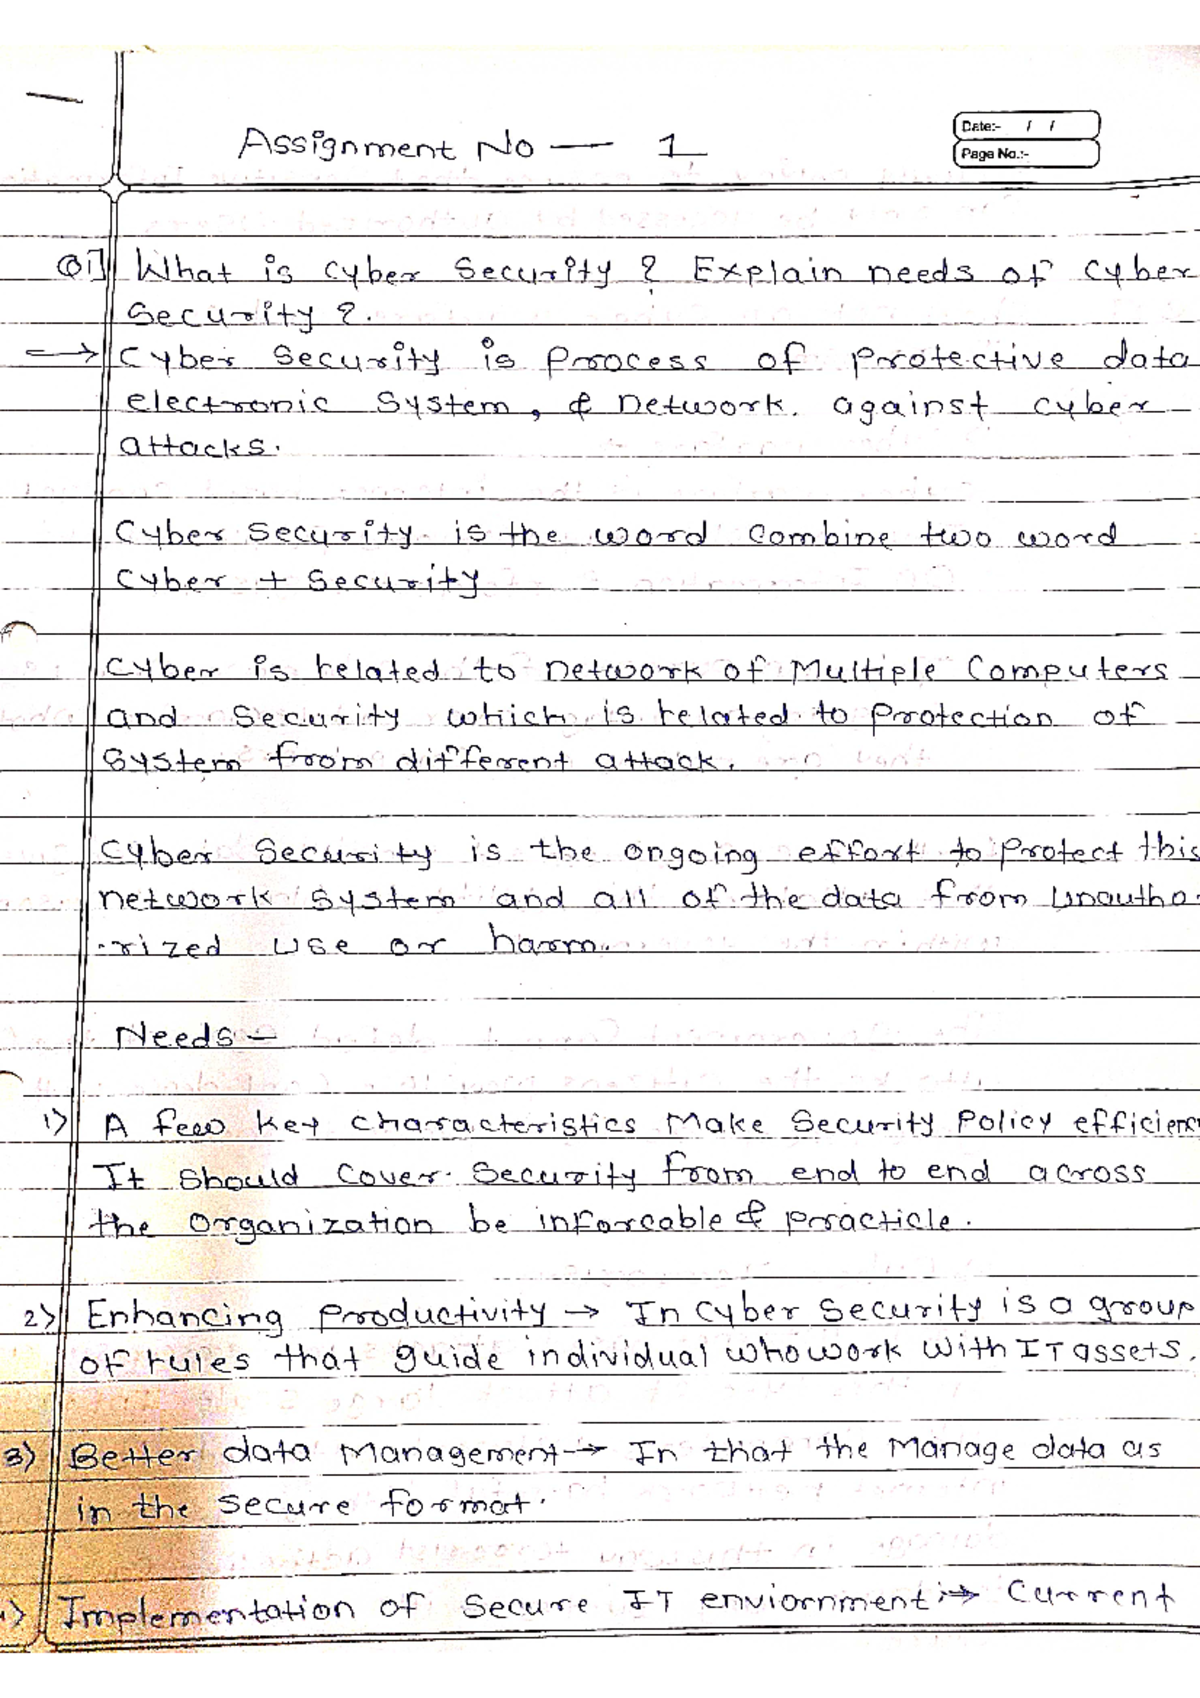 Assignment No — 1
Date:- / /
Page No.:-
Q1] What is cyber security ? Explain needs of cyber
security ?.
→ Cyber security is process of protective data
electronic system, & network. against cyber
attacks.
Cyber security is the word combine two word
cyber + security
Cyber is related to network of Multiple Computers
and security which is related to protection of
system from different attack.
Cyber security is the ongoing effort to protect this
network system and all of the data from unautho-
-rized use or harm.
Needs -
1) A few key characteristics make security policy efficienc
It should cover security from end to end across
the organization be inforcable & practicle.
2) Enhancing productivity → In cyber security is a group
of rules that guide individual who work with IT assets.
3) Better data management → In that the manage data as
in the secure format.
) Implementation of secure IT enviornment :→ Current